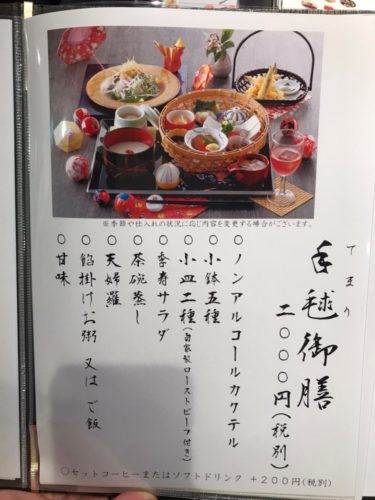 ※季節や仕入れの状況に応じ内容を変更する場合がございます。
てまり
手毬御膳
二〇〇〇円(税別)
○ノンアルコールカクテル
○小鉢五種
○小皿二種(自家製ローストビーフ付き)
○季寿サラダ
○茶碗蒸し
○天婦羅
○餡掛けお粥 又は ご飯
○甘味
○セットコーヒーまたはソフトドリンク +200円(税別)